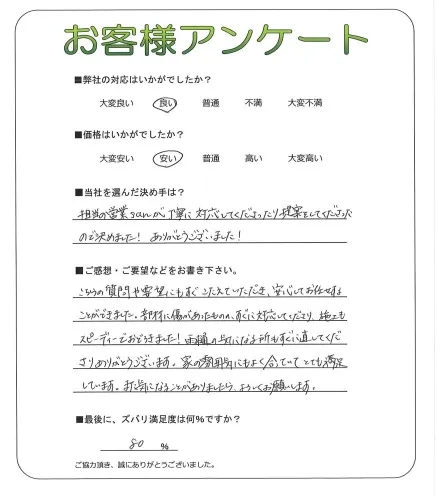 お客様アンケート
■弊社の対応はいかがでしたか?
大変良い 良い 普通 不満 大変不満
■価格はいかがでしたか?
大変安い 安い 普通 高い 大変高い
■当社を選んだ決め手は?
担当の営業sanが丁寧に対応してくださったり提案をしてくださった
ので決めました! ありがとうございました!
■ご感想・ご要望などをお書き下さい。
こちらの質問や要望にもすぐこたえていただき、安心してお任せする
ことができました。部材に傷があったものの、すぐに対応してくださり、施工も
スピーディーでおどろきました! 雨樋の気になる所もすぐに直してくだ
さりありがとうございます。家の雰囲気にもよく合っていてとても満足
しています。また気になることがありましたら、よろしくお願いします。
■最後に、ズバリ満足度は何%ですか?
80 %
ご協力頂き、誠にありがとうございました。